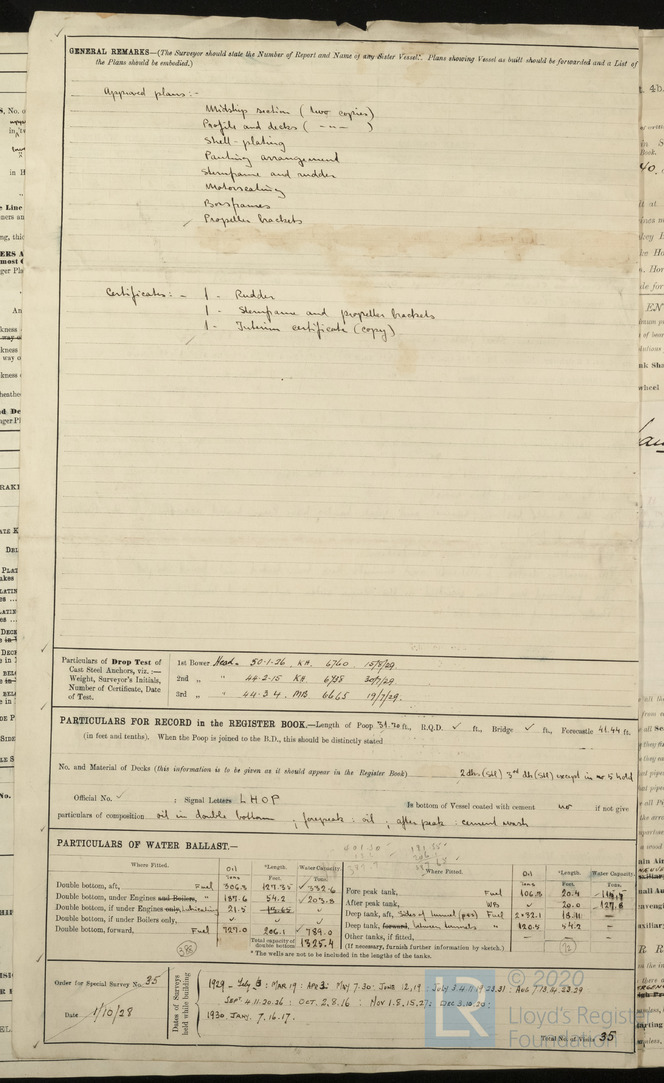 GENERAL REMARKS—(The Surveyor should state the Number of Report and Name of any Sister Vessel. Plans showing Vessel as built should be forwarded and a List of
the Plans should be embodied.)
Approved plans:-
Midship section (two copies)
Profile and decks ( -"- )
Shell-plating
Panting arrangement
Sternframe and rudder
Motorseating
Bossframes
Propeller brackets
Certificates: - 1 - Rudder
1 - Sternframe and propeller brackets
1 - Interim certificate (copy)
Particulars of Drop Test of
Cast Steel Anchors, viz. :—
Weight, Surveyor's Initials,
Number of Certificate, Date
of Test.
1st Bower Head. 50-1-26 KA. 6760 15/8/29
2nd „ " 44-2-15 KA 6738 30/7/29
3rd „ " 44-3-4 MB 6665 19/7/29.
PARTICULARS FOR RECORD in the REGISTER BOOK.—Length of Poop 31.70 ft., R.Q.D. ✓ ft., Bridge ✓ ft., Forecastle 41.44 ft.
(in feet and tenths). When the Poop is joined to the R.D., this should be distinctly stated
No. and Material of Decks (this information is to be given as it should appear in the Register Book) 2 dks (Stl) 3rd dk (Stl) except in no 5 hold
Official No. ✓ ; Signal Letters LHOP Is bottom of Vessel coated with cement no if not give
particulars of composition oil in double bottom ; forepeak : oil ; after peak : cement wash
PARTICULARS OF WATER BALLAST.—
Where Fitted. Oil Tons *Length. Feet. Water Capacity. Tons.
Double bottom, aft, Fuel 306.3 127.35 332.6
Double bottom, under Engines and Boilers, " 187.6 54.2 203.8
Double bottom, if under Engines only, lubricating 21.5 18.65 ✓
Double bottom, if under Boilers only, ✓ ✓ ✓
Double bottom, forward, Fuel 727.0 206.1 789.0
Total capacity of double bottom 1325.4
(386)
Where Fitted. Oil Tons *Length. Feet. Water Capacity. Tons.
Fore peak tank, Fuel 106.3 20.4
After peak tank, WB ✓ 20.0 127.8
Deep tank, aft, Sides of tunnel (ps) Fuel 2×32.1 18.11 —
Deep tank, forward, between tunnels " 120.5 54.2 —
Other tanks, if fitted, — — —
(If necessary, furnish further information by sketch.)
* The wells are not to be included in the lengths of the tanks.
Order for Special Survey No. 35
Date 1/10/28
Dates of Surveys held while building
1929 - July 3 : MAR 19 : APR 3 : MAY 7.30 : JUNE 12,19 : July 3.4.11.19.23.31 : AUG 7.13.14.23.29
SEPT. 4.11.20.26 : OCT. 2.8.16 : NOV 1.8.15.27 : DEC 3.10.20 :
1930. JANY. 7.16.17.
Total No. of Visits 35
© 2020
LR
Lloyd's Register
Foundation